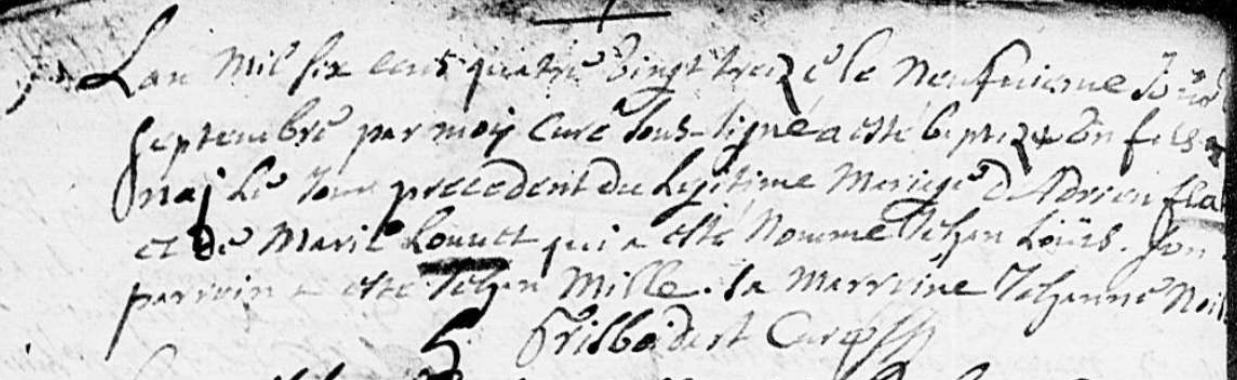 Lan Mil six cens quatre vingt treize le Neufuieme Jour
Septembre par moy Curé sous-signé a esté baptizé Vn fils
naj Le Jour precedent du Legitime Mariage d'Adrien fla
et de Marie Louuet qui a esté Nommé Jehan Loüis. son
parrain a esté Jehan Mille. sa Marreine Jehanne Noil
Curé